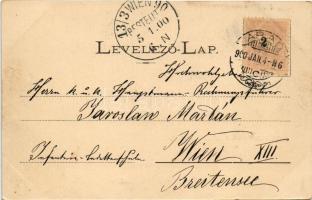 13/3 WIEN 90
BESTELLT
5.1.00
LEVELEZŐ-LAP.
900 JAN. 4
Hochwohlgeboren
Herrn k. u. k. Hauptmann-Rechnungsführer
Jaroslav Martan
Infanterie-Cadettenschule
Wien XIII.
Breitensee